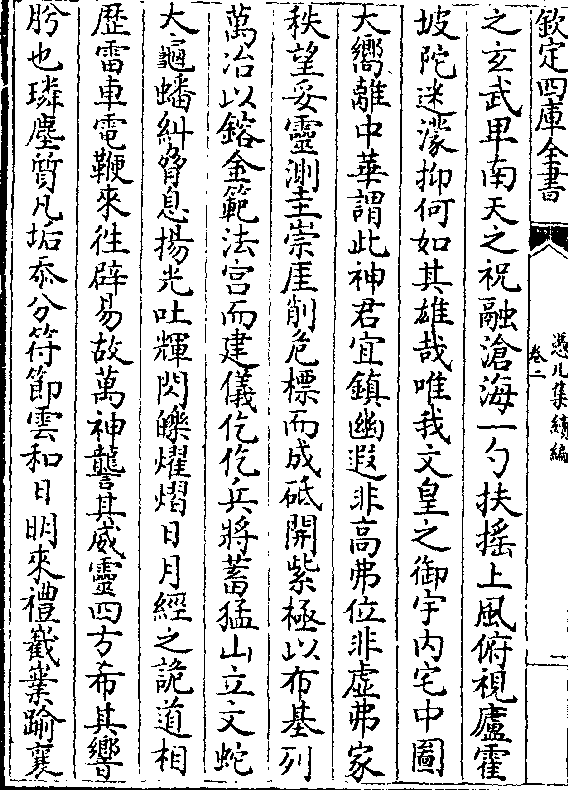 欽定四庫全書
憑几集續編
卷二
一
之玄武卑南天之祝融滄海一勺扶搖上風俯視廬霍
坡陀迷濛抑何如其雄哉唯我文皇之御宇内宅中圖
大嚮離中華謂此神君宜鎮幽遐非高弗位非虚弗家
秩望妥靈測圭崇厓削危標而成砥開紫極以布基列
萬冶以鎔金範法宫而建儀仡仡兵將蓄猛山立文蛇
大龜蟠糾脅息揚光吐輝閃皪燿熠日月經之詭道相
歴雷車電鞭來往辟易故萬神讋其威靈四方希其響
肸也璘塵質凡垢忝分符節雲和日明來禮嶻嶪踰襄